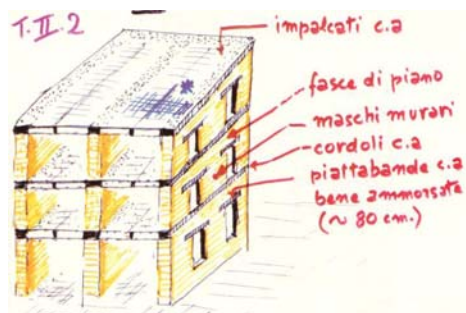 T.II.2
impalcati c.a
fasce di piano
maschi murari
cordoli c.a
piattabande c.a
bene ammorsate
(~ 80 cm.)